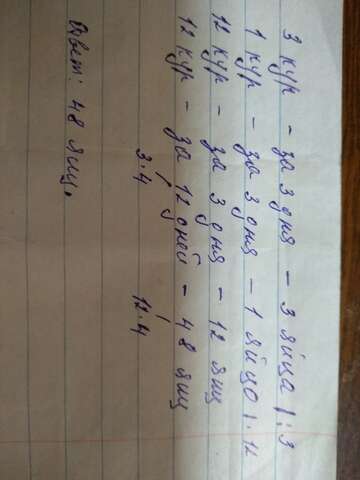 3 кур - за 3 дня - 3 яйца |:3
1 кур - за 3 дня - 1 яйцо |·12
12 кур - за 3 дня - 12 яиц
12 кур - за 12 дней - 48 яиц
3·4 12·4
Ответ: 48 яиц.